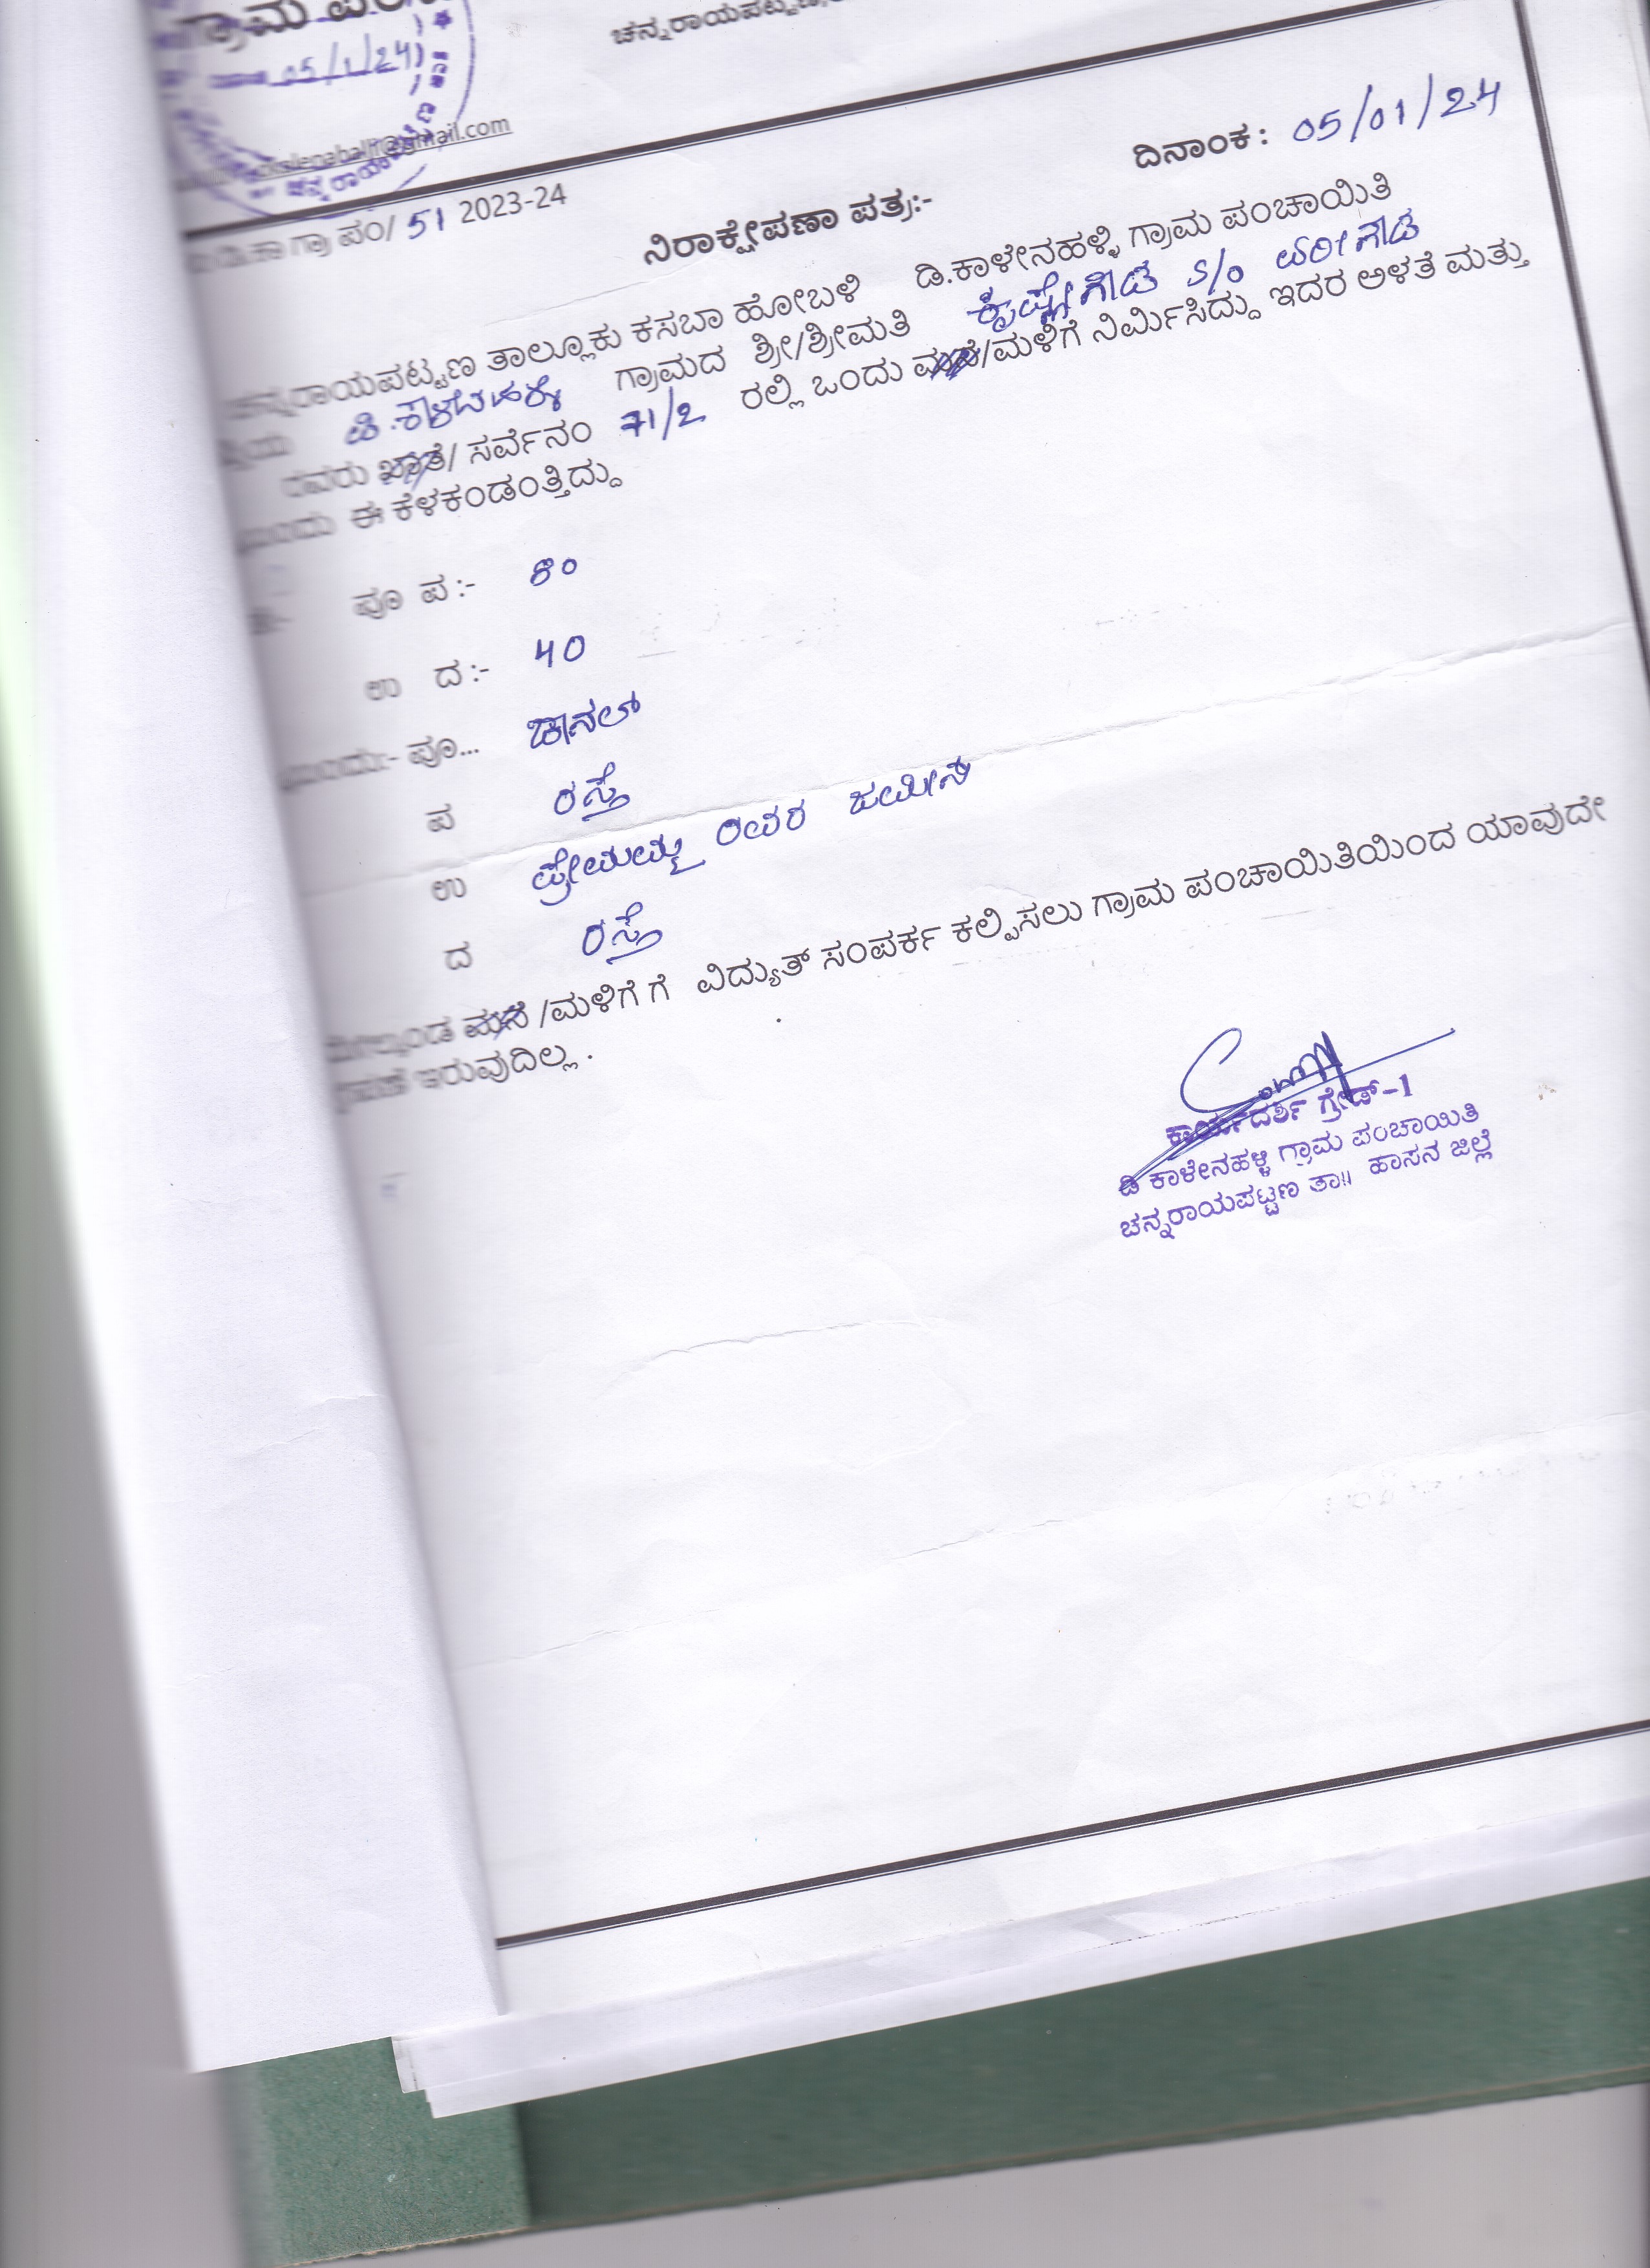 ಗ್ರಾಮ
05/1/24
ಚನ್ನರಾಯಪಟ್ಟಣ
@gmail.com
ಚನ್ನರಾಯಪಟ್ಟಣ
ದಿನಾಂಕ : 05/01/24
ಡಿ.ಕಾ ಗ್ರಾ ಪಂ/ 51 2023-24
ನಿರಾಕ್ಷೇಪಣಾ ಪತ್ರ:-
ಚನ್ನರಾಯಪಟ್ಟಣ ತಾಲ್ಲೂಕು ಕಸಬಾ ಹೋಬಳಿ ಡಿ.ಕಾಳೇನಹಳ್ಳಿ ಗ್ರಾಮ ಪಂಚಾಯಿತಿ
ಗ್ರಾಮದ ಶ್ರೀ/ಶ್ರೀಮತಿ ಕೃಷ್ಣೇಗೌಡ S/o
ರವರು ಖಾತೆ/ ಸರ್ವೆನಂ 71/2 ರಲ್ಲಿ ಒಂದು ಮನೆ/ಮಳಿಗೆ ನಿರ್ಮಿಸಿದ್ದು ಇದರ ಅಳತೆ ಮತ್ತು
ಈ ಕೆಳಕಂಡಂತ್ತಿದ್ದು
ಪೂ ಪ :- 80
ಉ ದ :- 40
ಪೂ... ಚಾನಲ್
ಪ ರಸ್ತೆ
ಉ ಪ್ರೇಮಮ್ಮ ರವರ ಜಮೀನು
ದ ರಸ್ತೆ
ಮನೆ /ಮಳಿಗೆ ಗೆ ವಿದ್ಯುತ್ ಸಂಪರ್ಕ ಕಲ್ಪಿಸಲು ಗ್ರಾಮ ಪಂಚಾಯಿತಿಯಿಂದ ಯಾವುದೇ
ಇರುವುದಿಲ್ಲ .
ಕಾರ್ಯದರ್ಶಿ ಗ್ರೇಡ್-1
ಡಿ ಕಾಳೇನಹಳ್ಳಿ ಗ್ರಾಮ ಪಂಚಾಯಿತಿ
ಚನ್ನರಾಯಪಟ್ಟಣ ತಾ॥ ಹಾಸನ ಜಿಲ್ಲೆ